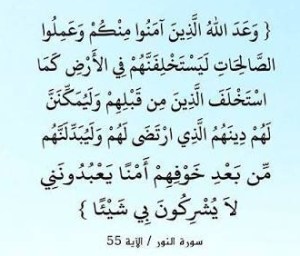 { وَعَدَ اللهُ الَّذِينَ آمَنُوا مِنْكُمْ وَعَمِلُوا
الصَّالِحَاتِ لَيَسْتَخْلِفَنَّهُمْ فِي الأَرْضِ كَمَا
اسْتَخْلَفَ الَّذِينَ مِن قَبْلِهِمْ وَلَيُمَكِّنَنَّ
لَهُمْ دِينَهُمُ الَّذِي ارْتَضَى لَهُمْ وَلَيُبَدِّلَنَّهُم
مِّن بَعْدِ خَوْفِهِمْ أَمْنًا يَعْبُدُونَنِي
لاَ يُشْرِكُونَ بِي شَيْئًا }
سورة النور / الآية 55